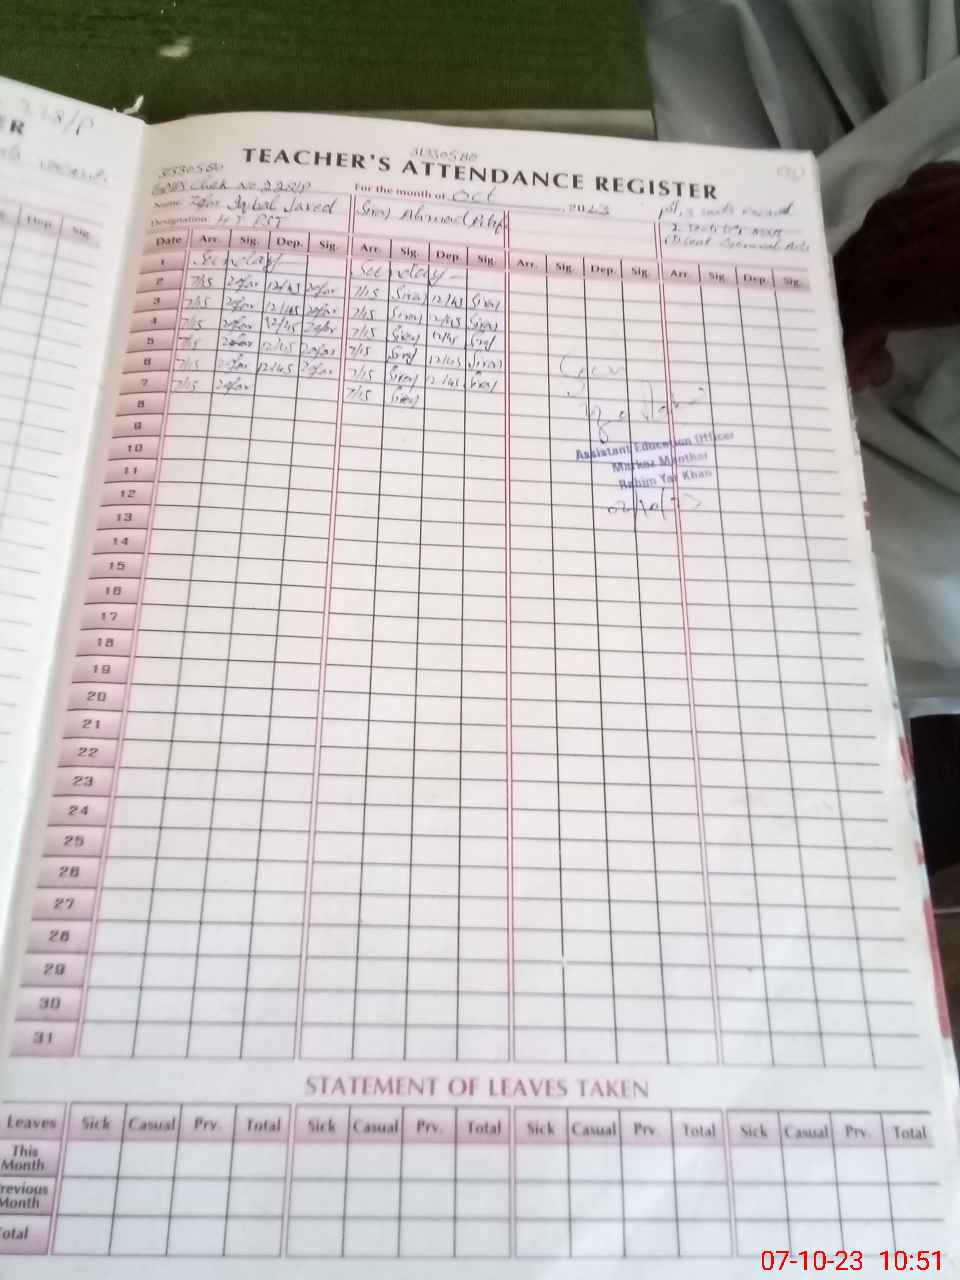 228/P
ER
31330580
TEACHER'S ATTENDANCE REGISTER
31330580
Chak No 228/P
For the month of Oct 2023
Name: Zafar Iqbal Javed
Siraj Ahmad
Designation:
Date Arr. Sig. Dep. Sig. Arr. Sig. Dep. Sig. Arr. Sig. Dep. Sig. Arr. Sig. Dep. Sig.
Dep. Sig.
1 Sunday Sunday
2 7/15 Zafar 12/45 Zafar 7/15 Siraj 12/45 Siraj
3 7/15 Zafar 12/45 Zafar 7/15 Siraj 12/45 Siraj
4 7/15 Zafar 12/45 Zafar 7/15 Siraj 12/45 Siraj
5 7/15 Zafar 12/45 Zafar 7/15 Siraj 12/45 Siraj
6 7/15 Zafar 12/45 Zafar 7/15 Siraj 12/45 Siraj
7 7/15 Zafar 7/15 Siraj
8
9
10
11
12
13
14
15
16
17
18
19
20
21
22
23
24
25
26
27
28
29
30
31
Assistant Education Officer
Markaz Manthar
Rahim Yar Khan
STATEMENT OF LEAVES TAKEN
Leaves Sick Casual Prv. Total Sick Casual Prv. Total Sick Casual Prv. Total Sick Casual Prv. Total
This
Month
revious
Month
otal
07-10-23 10:51